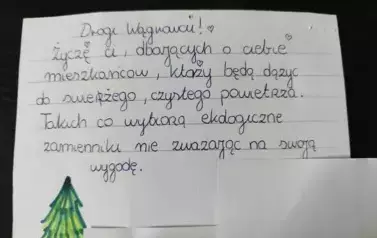 Drogi Wągrowcu! ♥
Życzę ci, dbających o ciebie
mieszkańców, którzy będą dążyć
do świeżego, czystego powietrza.
Takich co wybiorą ekologiczne
zamienniki nie zważając na swoją
wygodę.